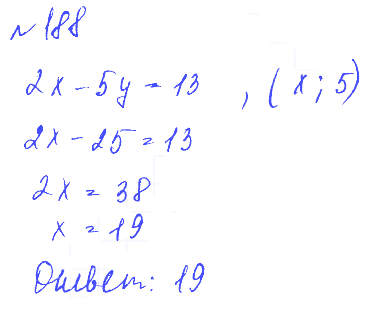 №188
2x - 5y = 13 , (x; 5)
2x - 25 = 13
2x = 38
x = 19
Ответ: 19